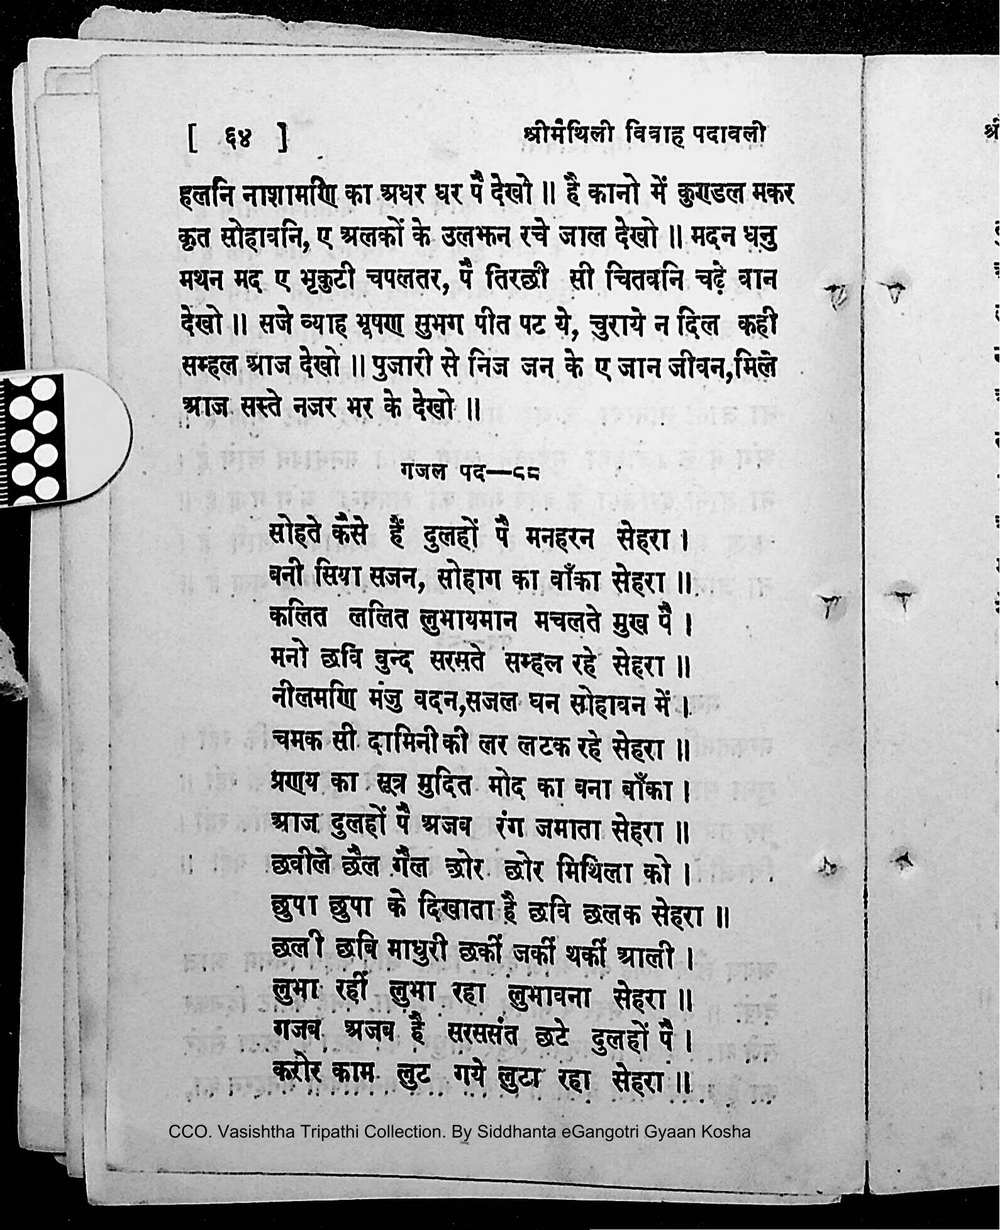 [ ६४ ] श्रीमैथिली विवाह पदावली
हलनि नाशामणि का अधर धर पै देखो ॥ है कानो में कुण्डल मकर
कृत सोहावनि, ए अलकों के उलझन रचे जाल देखो ॥ मदन धनु
मथन मद ए भृकुटी चपलतर, पै तिरछी सी चितवनि चढ़े वान
देखो ॥ सजे व्याह भूषण सुभग पीत पट ये, चुराये न दिल कही
सम्हल आज देखो ॥ पुजारी से निज जन के ए जान जीवन,मिले
आज सस्ते नजर भर के देखो ॥
गजल पद—८८
सोहते कैसे हैं दुलहों पै मनहरन सेहरा ।
वनी सिया सजन, सोहाग का वाँका सेहरा ॥
कलित ललित लुभायमान मचलते मुख पै ।
मनो छवि वुन्द सरसते सम्हल रहे सेहरा ॥
नीलमणि मंजु वदन,सजल घन सोहावन में ।
चमक सी दामिनी की लर लटक रहे सेहरा ॥
प्रणय का सूत्र मुदित मोद का वना बाँका ।
आज दुलहों पै अजव रंग जमाता सेहरा ॥
छवीले छैल गैल छोर छोर मिथिला को ।
छुपा छुपा के दिखाता है छवि छलक सेहरा ॥
छली छबि माधुरी छकीं जकीं थकीं आली ।
लुभा रहीं लुभा रहा लुभावना सेहरा ॥
गजब अजब है सरससंत छटे दुलहों पै ।
करोर काम लुट गये लुटा रहा सेहरा ॥
CCO. Vasishtha Tripathi Collection. By Siddhanta eGangotri Gyaan Kosha